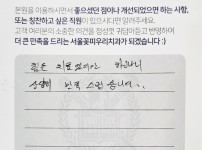 본원을 이용하시면서 좋으셨던 점이나 개선되었으면 하는 사항,
또는 칭찬하고 싶은 직원이 있으시다면 알려주세요.
고객 여러분의 소중한 의견을 정성껏 귀담아듣고 반영하여
더 큰 만족을 드리는 서울꽃피우리치과가 되겠습니다 :)
힘든 치료 였지만
만족 스럽 습니다